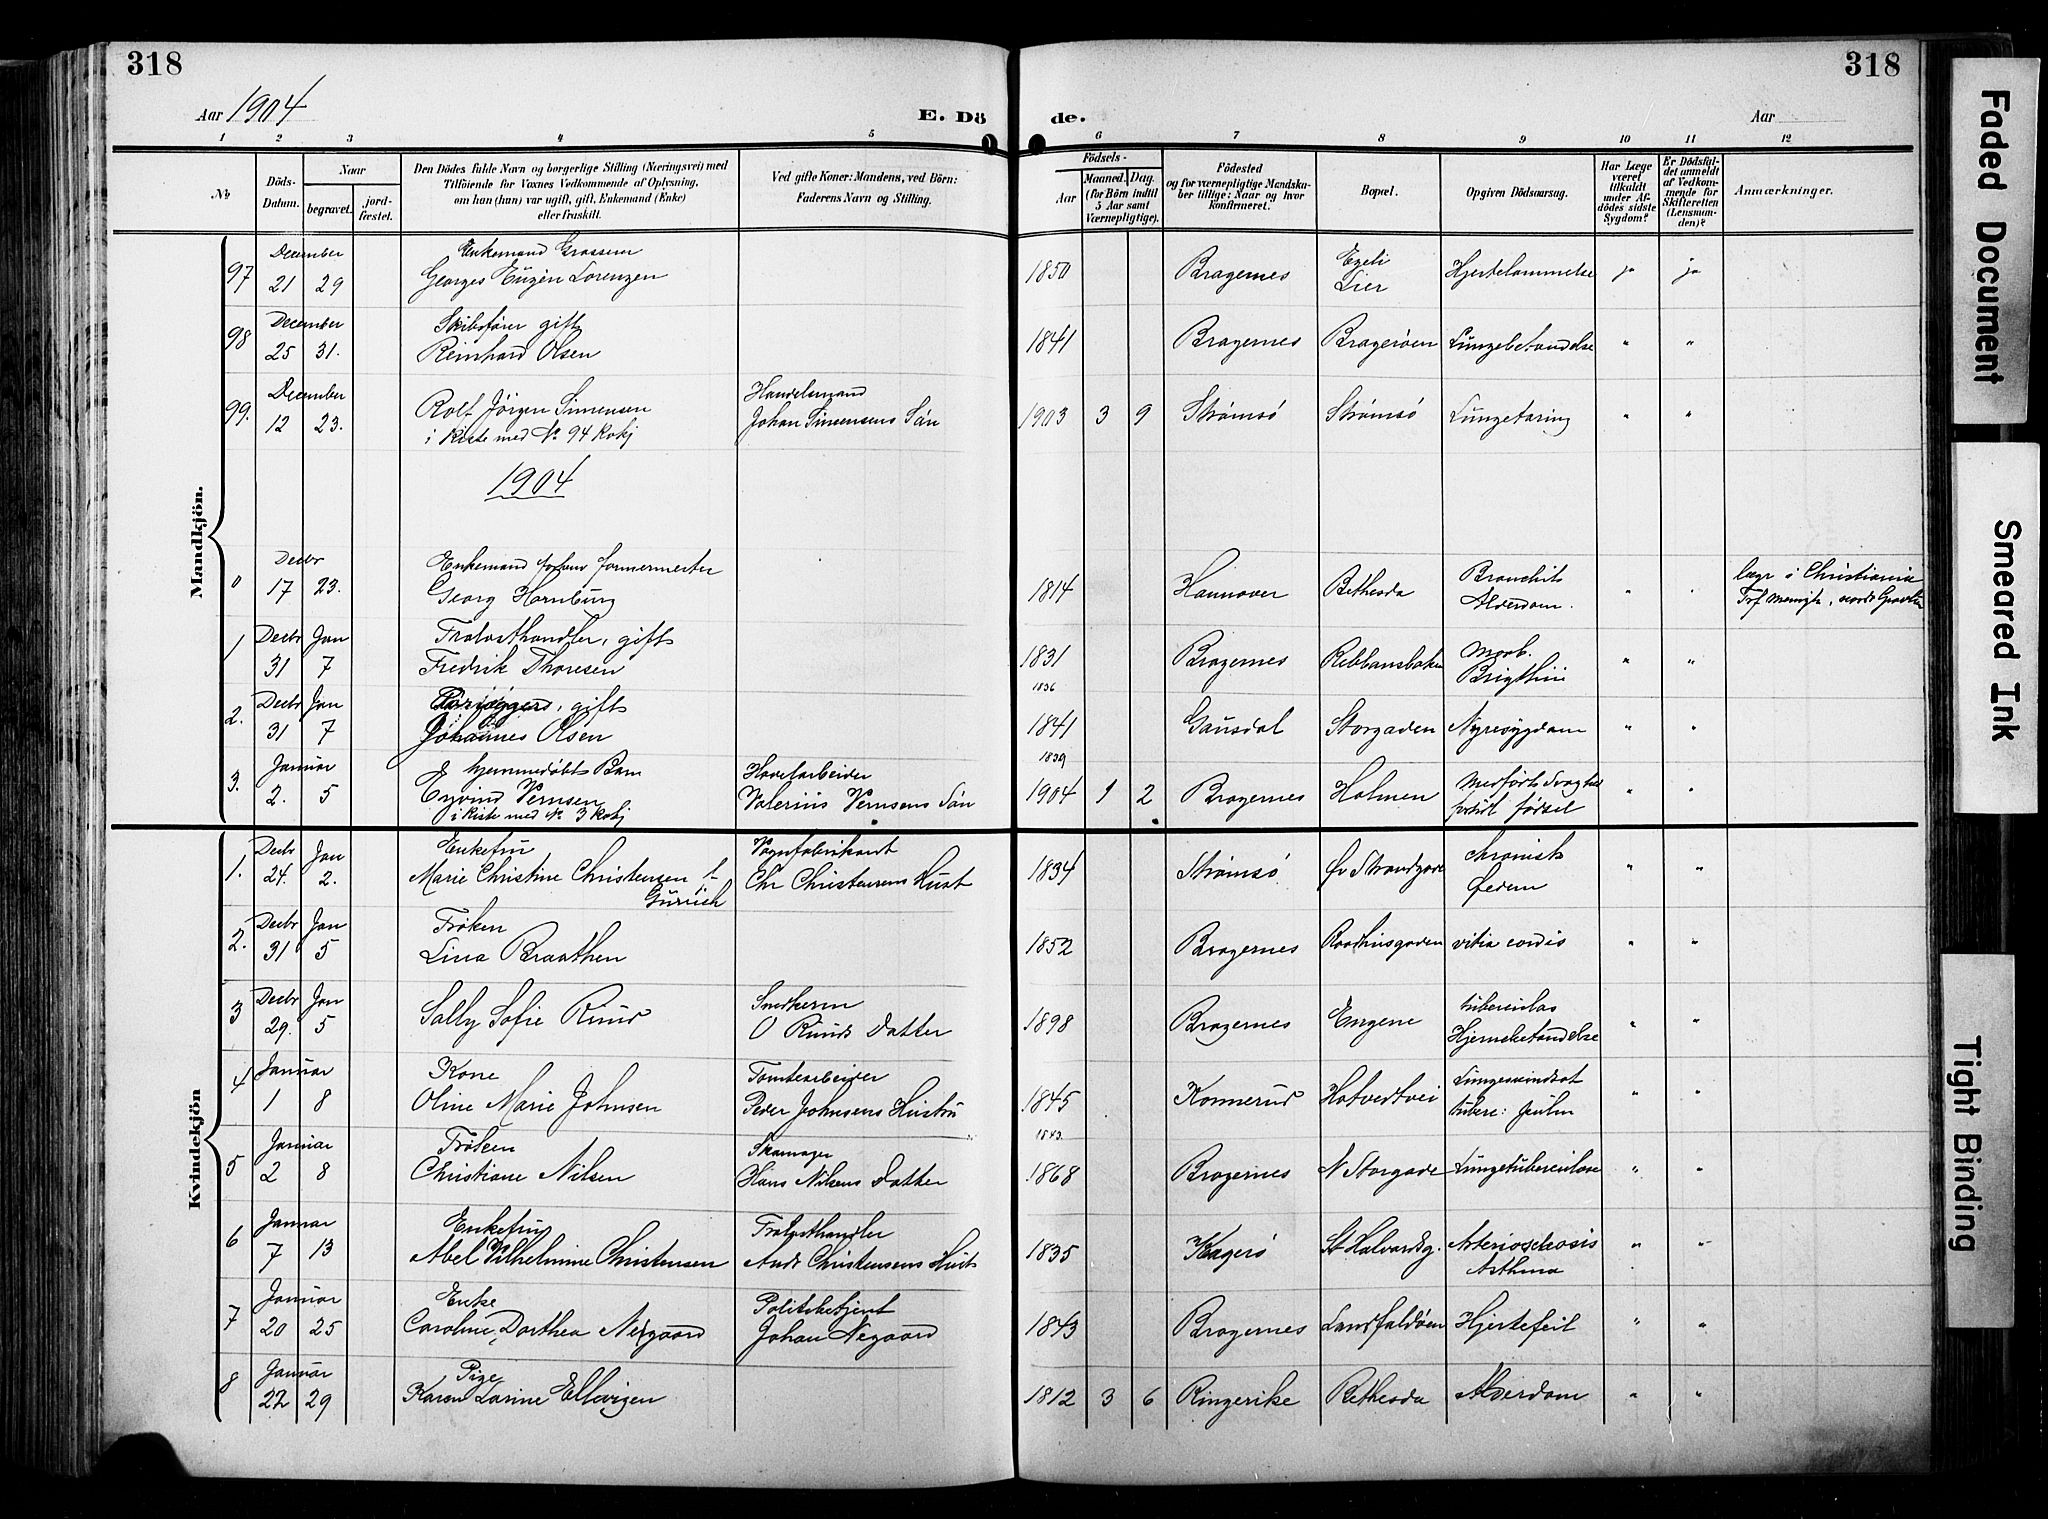 318
318
Aar 1904
E. Dö
de.
Aar
1 2 3 4 5 6 7 8 9 10 11 12
No
Döds-Datum.
Naar
begravet.
jord-fæstet.
Den Dödes fulde Navn og borgerlige Stilling (Næringsvei) med
Tilföiende for Voxnes Vedkommende af Oplysning,
om han (hun) var ugift, gift, Enkemand (Enke)
eller fraskilt.
Ved gifte Koner: Mandens, ved Börn:
Faderens Navn og Stilling.
Födsels-
Aar
Maaned. Dag.
(for Börn indtil
5 Aar samt
Værnepligtige).
Födested
og for værnepligtige Mandska-
ber tillige: Naar og hvor
konfirmeret.
Bopæl.
Opgiven Dödsaarsag.
Har Læge
været
tilkaldt
under Af-
dödes sidste
Sygdom?
Er Dödsfal-
det anmeldt
af Vedkom-
mende for
Skifteretten
(Lensman-
den)?
Anmærkninger.
Mandkjön.
December Enkemand Grosserer
97 21 29 Georges Eugén Lorenzen 1850 Bragernes Egeli Lier Hjertelammelse ja ja
December Skibsfører gift
98 25 31. Reinhard Olsen 1841 Bragernes Bragerøen Lungebetændelse " "
December Handelsmand
99. 12 23. Rolf Jörgen Simensen Johan Simensens Sön 1903 3 9 Strømsö Strømsö Lungetæring " "
i kiste med No 94 Kokj
1904
Decbr Enkemand formermester
0 17 23. Georg Hornburg 1814 Hannover Bethesda Bronchit Alderdom. " " i Christiania
Decbr Jan Trælasthandler, gift
1 31 7 Fredrik Thoresen 1831 Bragernes Morb. Brigthii " "
1836
Decbr Jan gift
2. 31 7 Johannes Olsen 1841 Gausdal Storgaden Nyresygdom " "
1839
Januar hjemmedøbt Barn
3. 2. 5 Eyvind Vernsen Valerius Vernsens Sön 1904 1 2 Bragernes Holmen Medfødt Svaghed fødsel " "
i kiste med No 3 Kokj
Kvindekjön
Decbr Jan Enkefru Vognfabrikant
1. 24. 2. Marie Christine Christensen f. Chr Christensens Hust 1834 Strømsö Øv Strandgade chronisk Ødem " "
Decbr Jan Frøken
2. 31 5 Lina Braathen 1852 Bragernes Raadhusgaden vitia cordis " "
Decbr Jan
3 29. 5 Sally Sofie Ruud O Ruuds Datter 1898 Bragernes Engene tuberculøs Hjernebetændelse " "
Januar Kone Tomtearbeider
4 1 8 Oline Marie Johnsen Peder Johnsens Hustru 1845 Konnerud Hotvedtvei Lungesvindsot " "
1843
Januar Frøken Skomager
5 2 8 Christiane Nilsen Hans Nilsens Datter 1868 Bragernes N Storgade Lungetuberculose " "
Januar Enkefru Trælasthandler
6 7 13 Abel Vilhelmine Christensen Andr Christensens Hust 1835 Kragerö St Halvardsg. Asthma " "
Januar Enke Politibetjent
7 20 25 Caroline Dorthea Nergaard Johan Negaard 1843 Bragernes Landfaldøen Hjertefeil " "
Januar Pige
8 22 29 Karen Larine Ellevigen 1812 3 6 Ringerike Bethesda Alderdom " "
Faded Document
Smeared Ink
Tight Binding